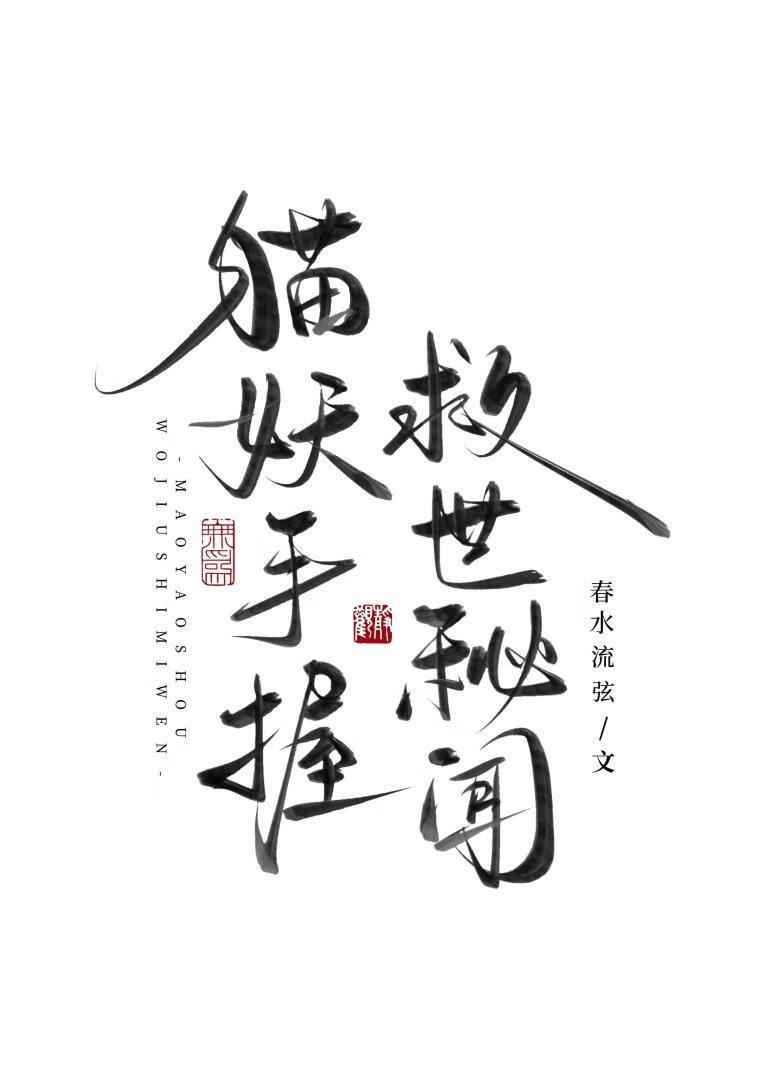 猫妖手握
救世秘闻
-MAOYAOSHOU
WOJIUSHIMIWEN-
静觀
春水流弦/文